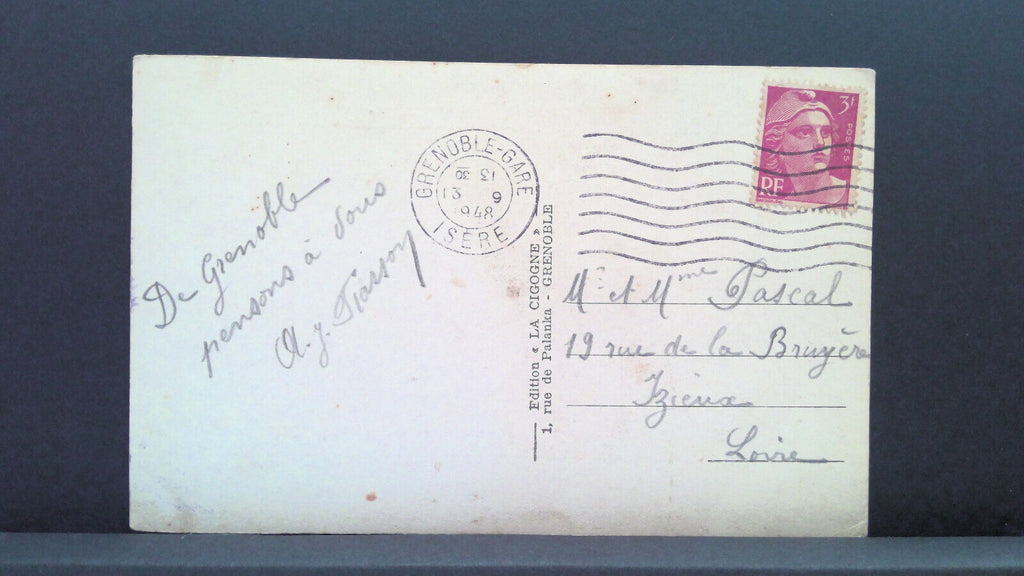 De Grenoble
pensons à vous
A. J. Tiasson
GRENOBLE-GARE
13 30
13 9
1948
ISÈRE
Edition « LA CIGOGNE »
1, rue de Palanka - GRENOBLE
3F
POSTES
RF
Mr et Mme Pascal
19 rue de la Bruyère
Izieux
Loire